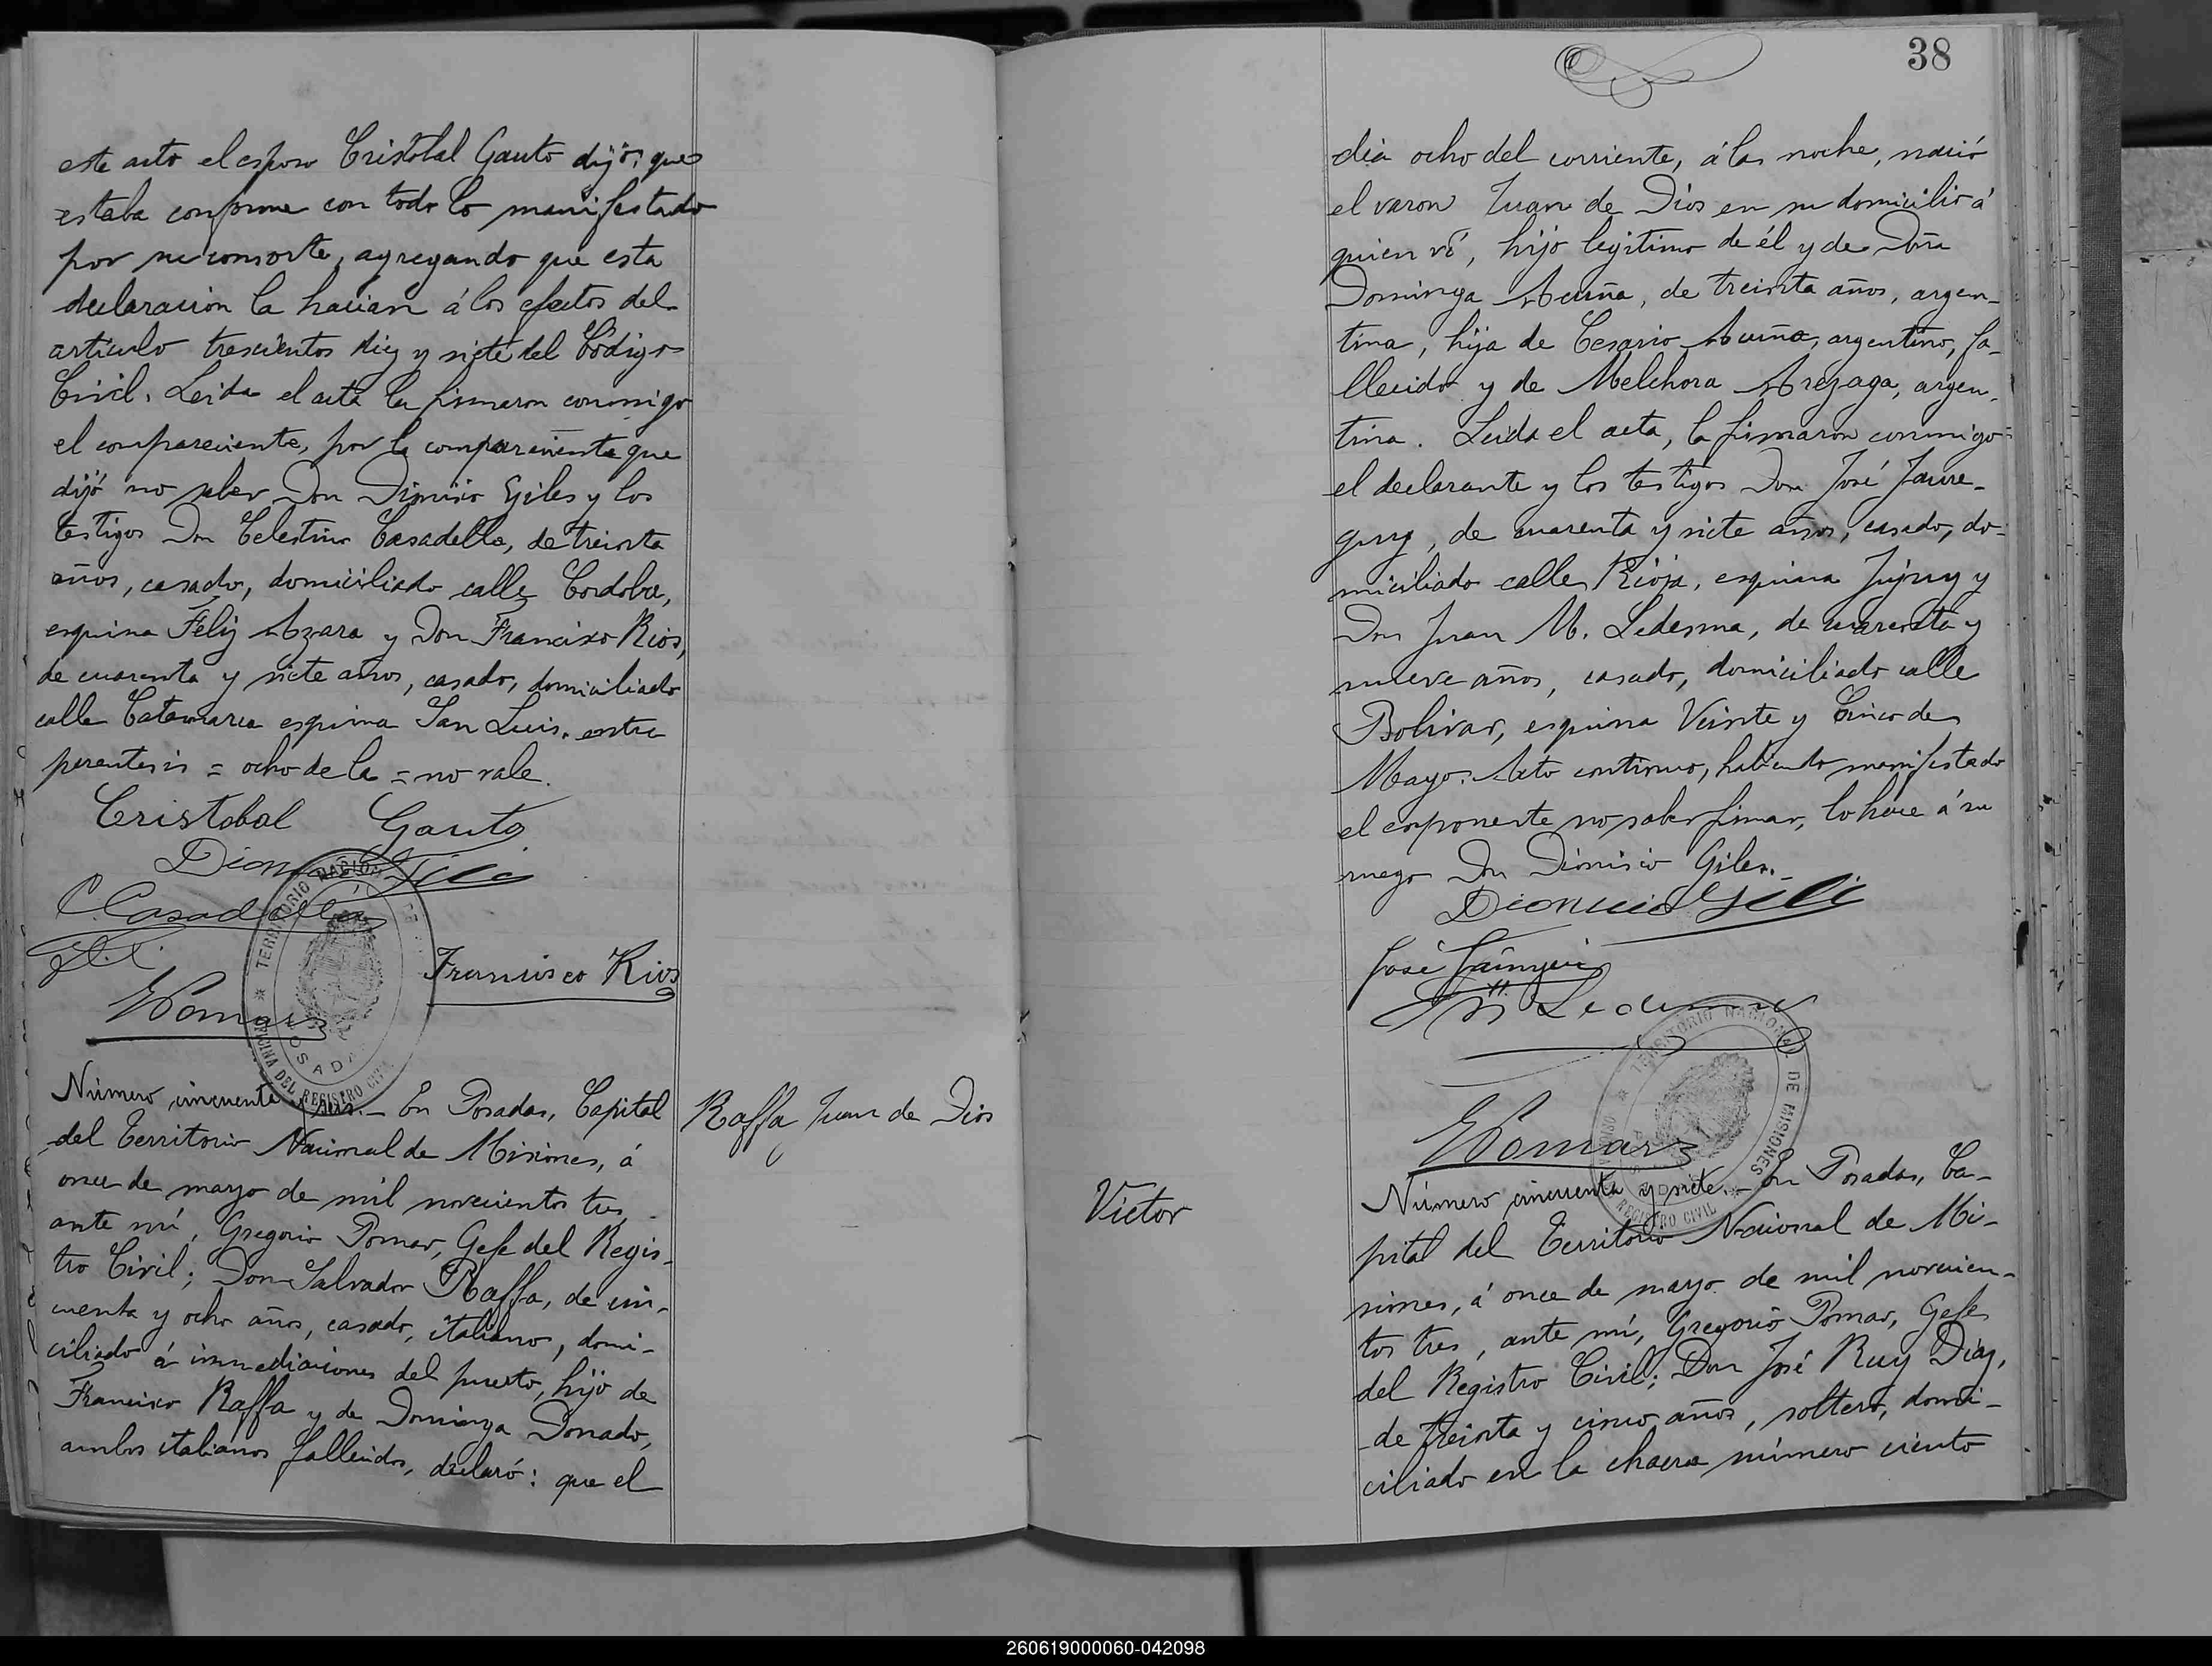 este acto el esposo Cristobal Gauto dijo: que
estaba conforme con todo lo manifestado
por su consorte, agregando que esta
declaracion la hacian á los efectos del
artículo trescientos diez y siete del Código
Civil. Leida el acta la firmaron conmigo
el compareciente, por la compareciente que
dijó no saber Don Dionisio Giles y los
testigos Don Celestino Casadella, de treinta
años, casado, domiciliado calle Cordoba,
esquina Feliz Azara y Don Francisco Rios,
de cuarenta y siete años, casado, domiciliado
calle Catamarca esquina San Luis. entre
parentesis = ocho de la = no vale.
Cristobal Gauto
Dionisio Giles
C. Casadella
Francisco Rios
GPomar
TERRITORIO NACIONAL DE
POSADAS
OFICINA DEL REGISTRO CIVIL
Número cincuenta y seis.- En Posadas, Capital
del Territorio Nacional de Misiones, á
once de mayo de mil novecientos tres,
ante mí, Gregorio Pomar, Gefe del Regis-
tro Civil; Don Salvador Raffa, de cin-
cuenta y ocho años, casado, italiano, domi-
ciliado á inmediaciones del puerto, hijo de
Francisco Raffa y de Dominga Donado,
ambos italianos fallecidos, declaró: que el
Raffa Juan de Dios
38
dia ocho del corriente, á las noche, nació
el varon Juan de Dios en su domicilio á
quien ví, hijo legitimo de él y de Doña
Dominga Acuña, de treinta años, argen-
tina, hija de Cesario Acuña, argentino, fa-
llecido y de Melchora Arezaga, argen-
tina. Leida el acta, la firmaron conmigo
el declarante y los testigos Don José Jaure-
guuy, de cuarenta y siete años, casado, do-
miciliado calle Rioja, esquina Jujuy y
Don Juan M. Ledesma, de cuarenta y
nueve años, casado, domiciliado calle
Bolivar, esquina Veinte y Cinco de
Mayo. Acto continuo, habiendo manifestado
el exponente no saber firmar, lo hace á su
ruego Don Dionisio Giles.-
Dionisio Giles
José
J M Ledesma
GPomar
TERRITORIO NACIONAL DE MISIONES
REGISTRO CIVIL
Victor
Número cincuenta y siete.- En Posadas, Ca-
pital del Territorio Nacional de Mi-
siones, á once de mayo de mil novecien-
tos tres, ante mí, Gregorio Pomar, Gefe
del Registro Civil; Don José Ruy Diaz,
de treinta y cinco años, soltero, domi-
ciliado en la chacra número ciento
260619000060-042098